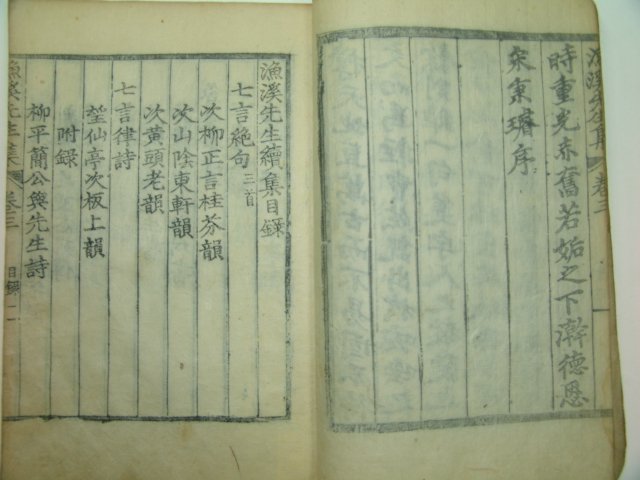 漁溪先生集 卷三
時重光赤奮若姤之下澣德恩
宋秉璿序
漁溪先生續集目録
七言絶句三首
次柳正言桂芬韻
次山陰東軒韻
次黄頭老韻
七言律詩
堃仙亭次板上韻
附録
柳平簡公與先生詩
漁溪先生集 卷三 目録 一